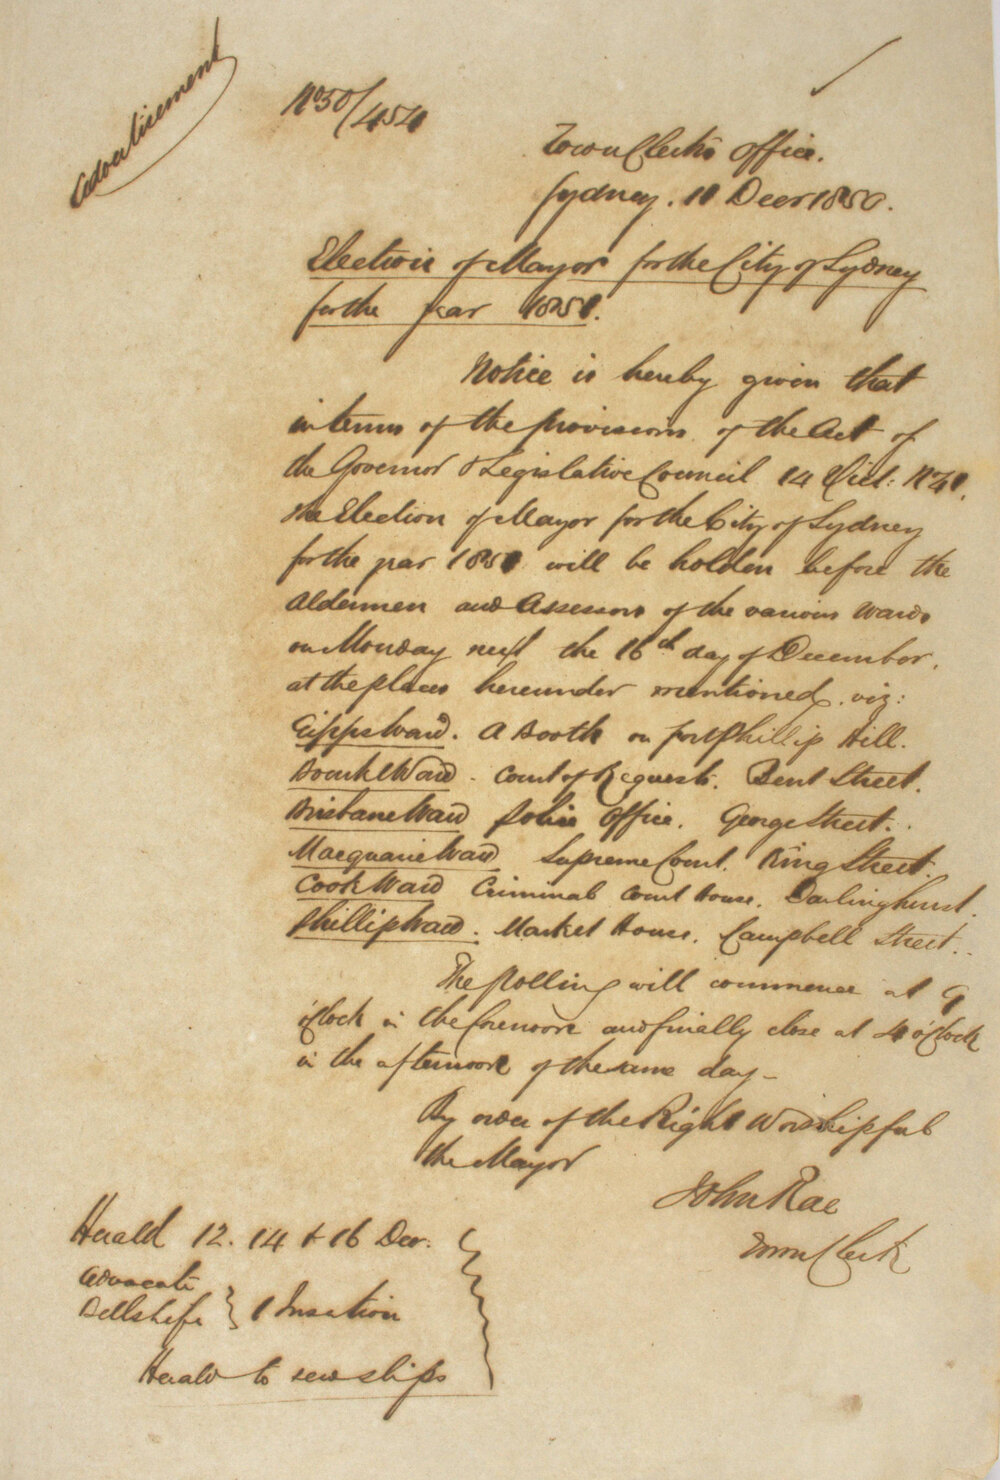 Advertisement
No 50/454
Town Clerk's Office.
Sydney. 11 Decr 1850.
Election of Mayor for the City of Sydney
for the year 1851.
Notice is hereby given that
in terms of the provisions of the Act of
the Governor & Legislative Council 14 Vict: No 41.
the Election of Mayor for the City of Sydney
for the year 1851 will be holden before the
Aldermen and Assessors of the various Wards
on Monday next the 16th day of December.
at the places hereunder mentioned. viz:
Gipps Ward. A Booth on fort Phillip Hill.
Bourke Ward. Court of Requests. Bent Street.
Brisbane Ward Police Office. George Street.
Macquarie Ward Supreme Court. King Street.
Cook Ward Criminal Court House. Darlinghurst.
Phillip Ward. Market House. Campbell Street.
The polling will commence at 9
o'Clock in the forenoon and finally close at 4 o'Clock
in the afternoon of the same day_
By order of the Right Worshipful
the Mayor
John Rae
Town Clerk
Herald 12. 14 & 16 Dec.
Advocate
Bells Life } 1 Insertion
Herald to send slips